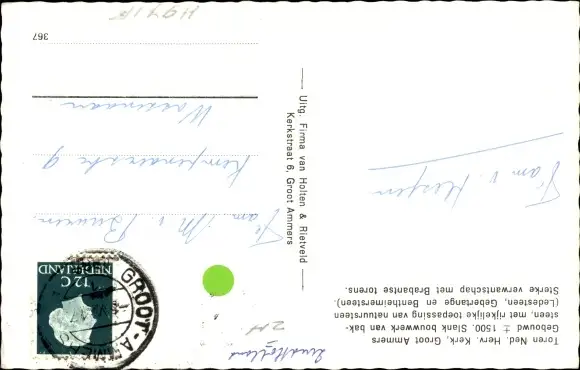 Toren Ned. Herv. Kerk, Groot Ammers
Gebouwd ± 1500. Slank bouwwerk van bak-
steen, met rijkelijke toepassing van natuursteen
(Ledesteen, Gebertange en Bentheimersteen).
Sterke verwantschap met Brabantse torens.
Fam. v.
Uitg. Firma van Holten & Rietveld
Kerkstraat 6, Groot Ammers
NEDERLAND
12 C
GROOT-A
Fam M v Buuren
9
Wassenaar
367
Zuid Holland
ZH